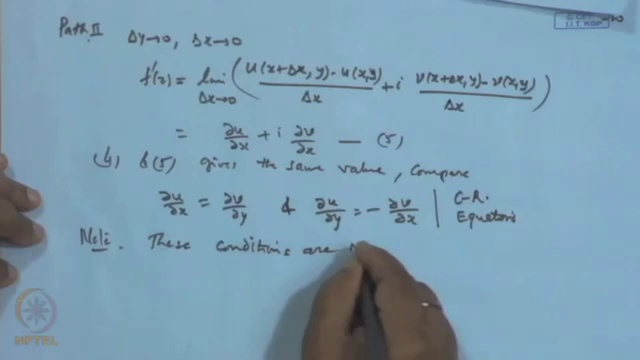 Path. II Δy→0, Δx→0
f'(z) = lim Δx→0 ( u(x+Δx, y) - u(x,y) / Δx + i v(x+Δx, y) - v(x,y) / Δx )
= ∂u/∂x + i ∂v/∂x — (5)
(4) & (5) gives the same value, compare
∂u/∂x = ∂v/∂y & ∂u/∂y = - ∂v/∂x | C-R. Equations
Note: These conditions are
NPTEL
I.I.T. KGP